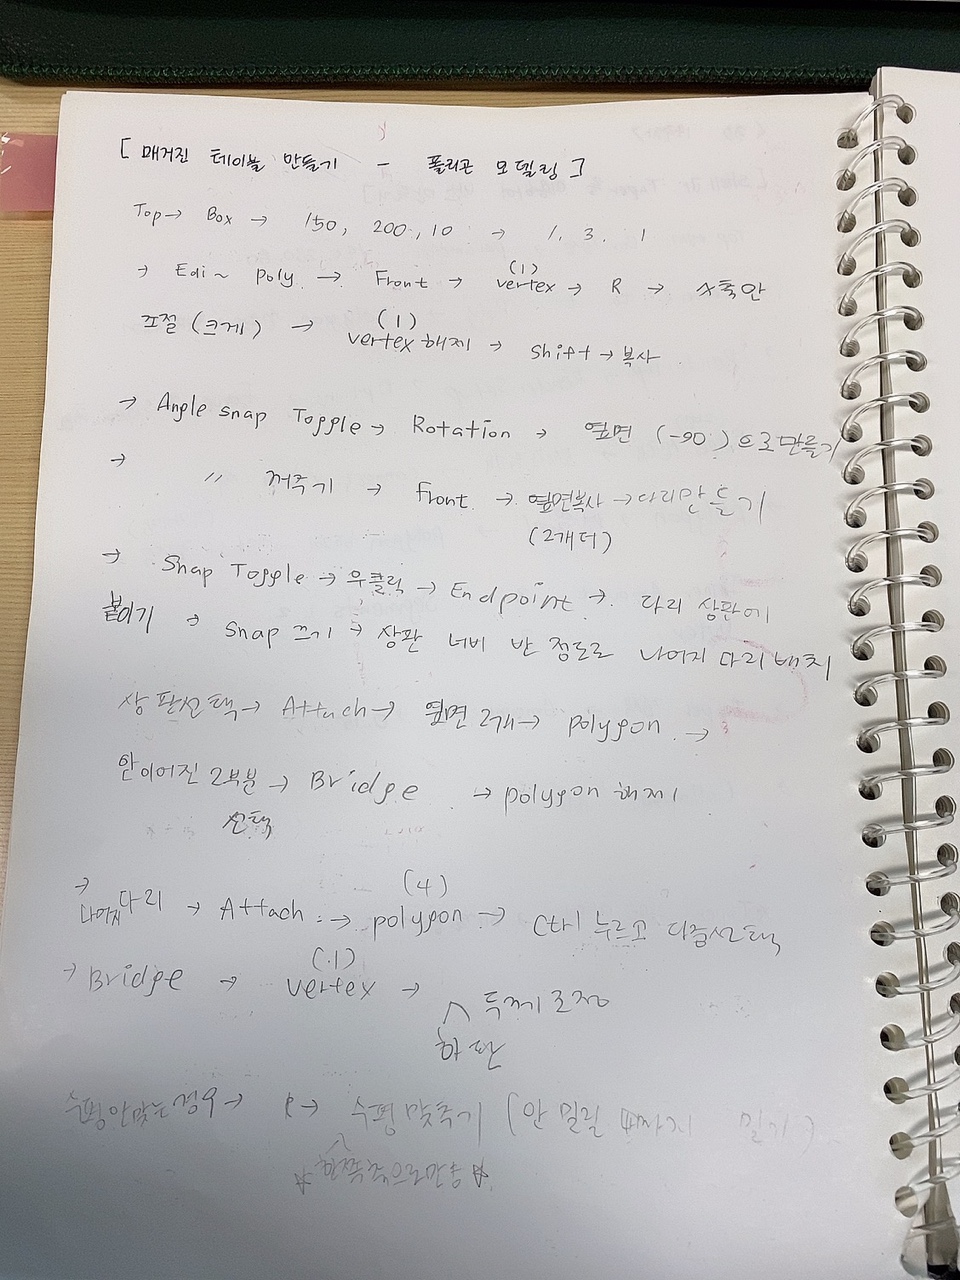 [ 매거진 테이블 만들기 - 폴리곤 모델링 ]
Top → Box → 150, 200, 10 → 1, 3, 1
→ Edi~ Poly → Front → (1) vertex → R → X축만
조절 (크게) → (1) vertex 해제 → Shift → 복사
→ Angle snap Toggle → Rotation → 옆면 (-90°)으로 만들기
→ 〃 꺼주기 → Front → 옆면복사 → 다리만들기
(2개 더)
→ Snap Toggle → 우클릭 → Endpoint → 다리 상판에
붙이기 → Snap 끄기 → 상판 너비 반 정도로 나머지 다리 배치
상판선택 → Attach → 옆면 2개 → polygon →
안이어진 2부분 → Bridge → polygon 해제
선택
→ 나머지 다리 → Attach → (4) polygon → Ctrl 누르고 다중선택
→ Bridge → (1) vertex → 두께 조정
하판
수평안맞는경우 → R → 수평 맞추기 (안 밀릴 때까지 밀기)
☆ 한쪽축으로만 ☆